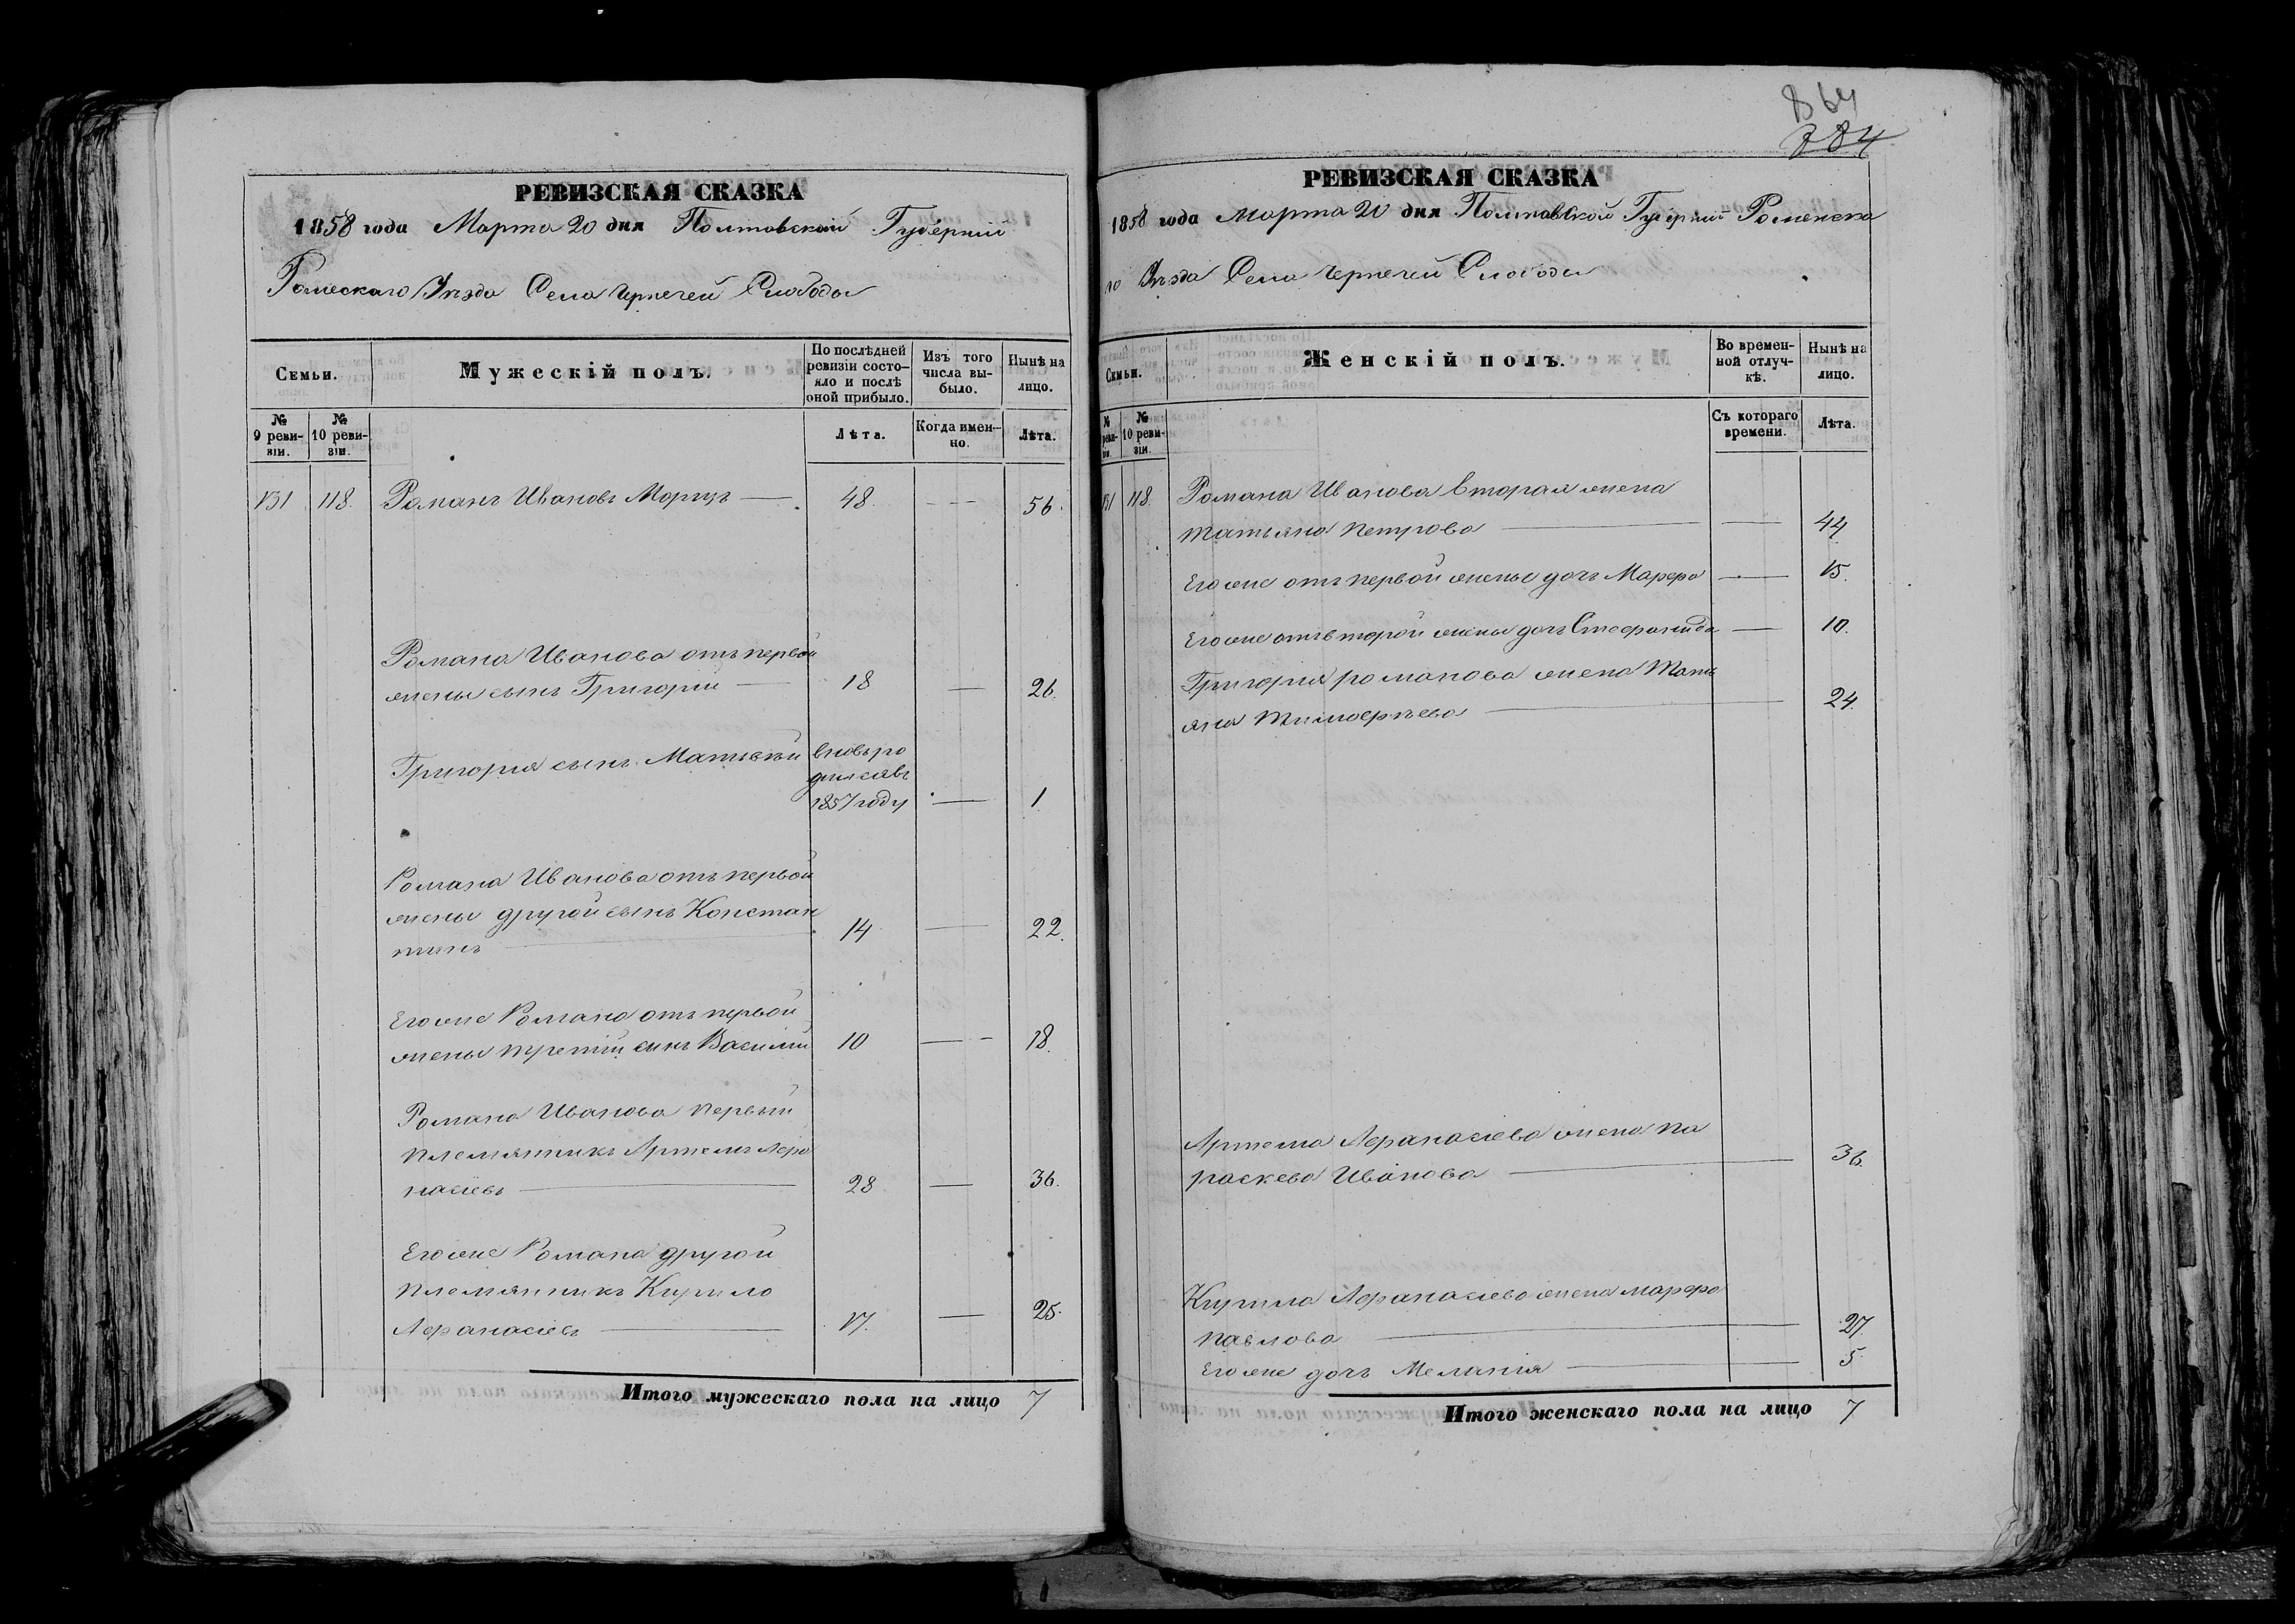 РЕВИЗСКАЯ СКАЗКА
1858 года Марта 20 дня Полтавской Губерніи
Роменскаго Уѣзда Села Чернечей Слободы
Семьи.
Мужескій полъ.
По послѣдней
ревизіи состо-
яло и послѣ
оной прибыло.
Изъ того
числа вы-
было.
Нынѣ на
лицо.
№
9 реви-
зіи.
№
10 реви-
зіи.
Лѣта.
Когда имен-
но.
Лѣта.
131 118. Романъ Ивановъ 48. 56.
Романа Иванова отъ первой
жены сынъ Григорій 18 26.
Григорія сынъ Матвѣй вновь ро
дился въ
1857 году 1
Романа Иванова отъ первой
жены другой сынъ Констан
тинъ 14 22.
Его же Романа отъ первой
жены третій сынъ Василій 10 18.
Романа Иванова первый
племянникъ Артемъ Афа
насіевъ 28 36.
Его же Романа другой
племянникъ Кирило
Афанасіевъ 17. 25.
Итого мужескаго пола на лицо 7
864
784
РЕВИЗСКАЯ СКАЗКА
1858 года Марта 20 дня Полтавской Губерніи Роменска
го Уѣзда Села Чернечей Слободы
Семьи.
Женскій полъ.
Во времен-
ной отлуч-
кѣ.
Нынѣ на
лицо.
№
реви-
зіи.
№
10 реви-
зіи.
Съ котораго
времени.
Лѣта.
131 118. Романа Иванова вторая жена
Татьяна Петрова 44
Его же отъ первой жены дочь Марфа 15.
Его же отъ второй жены дочь Стефанида 10.
Григорія Романова жена Тать
яна Тимофѣева 24.
Артема Афанасіева жена Па
раскева Иванова 36.
Кирила Афанасіева жена Марфа
Павлова 27.
Его же дочь Меланія 5.
Итого женскаго пола на лицо 7